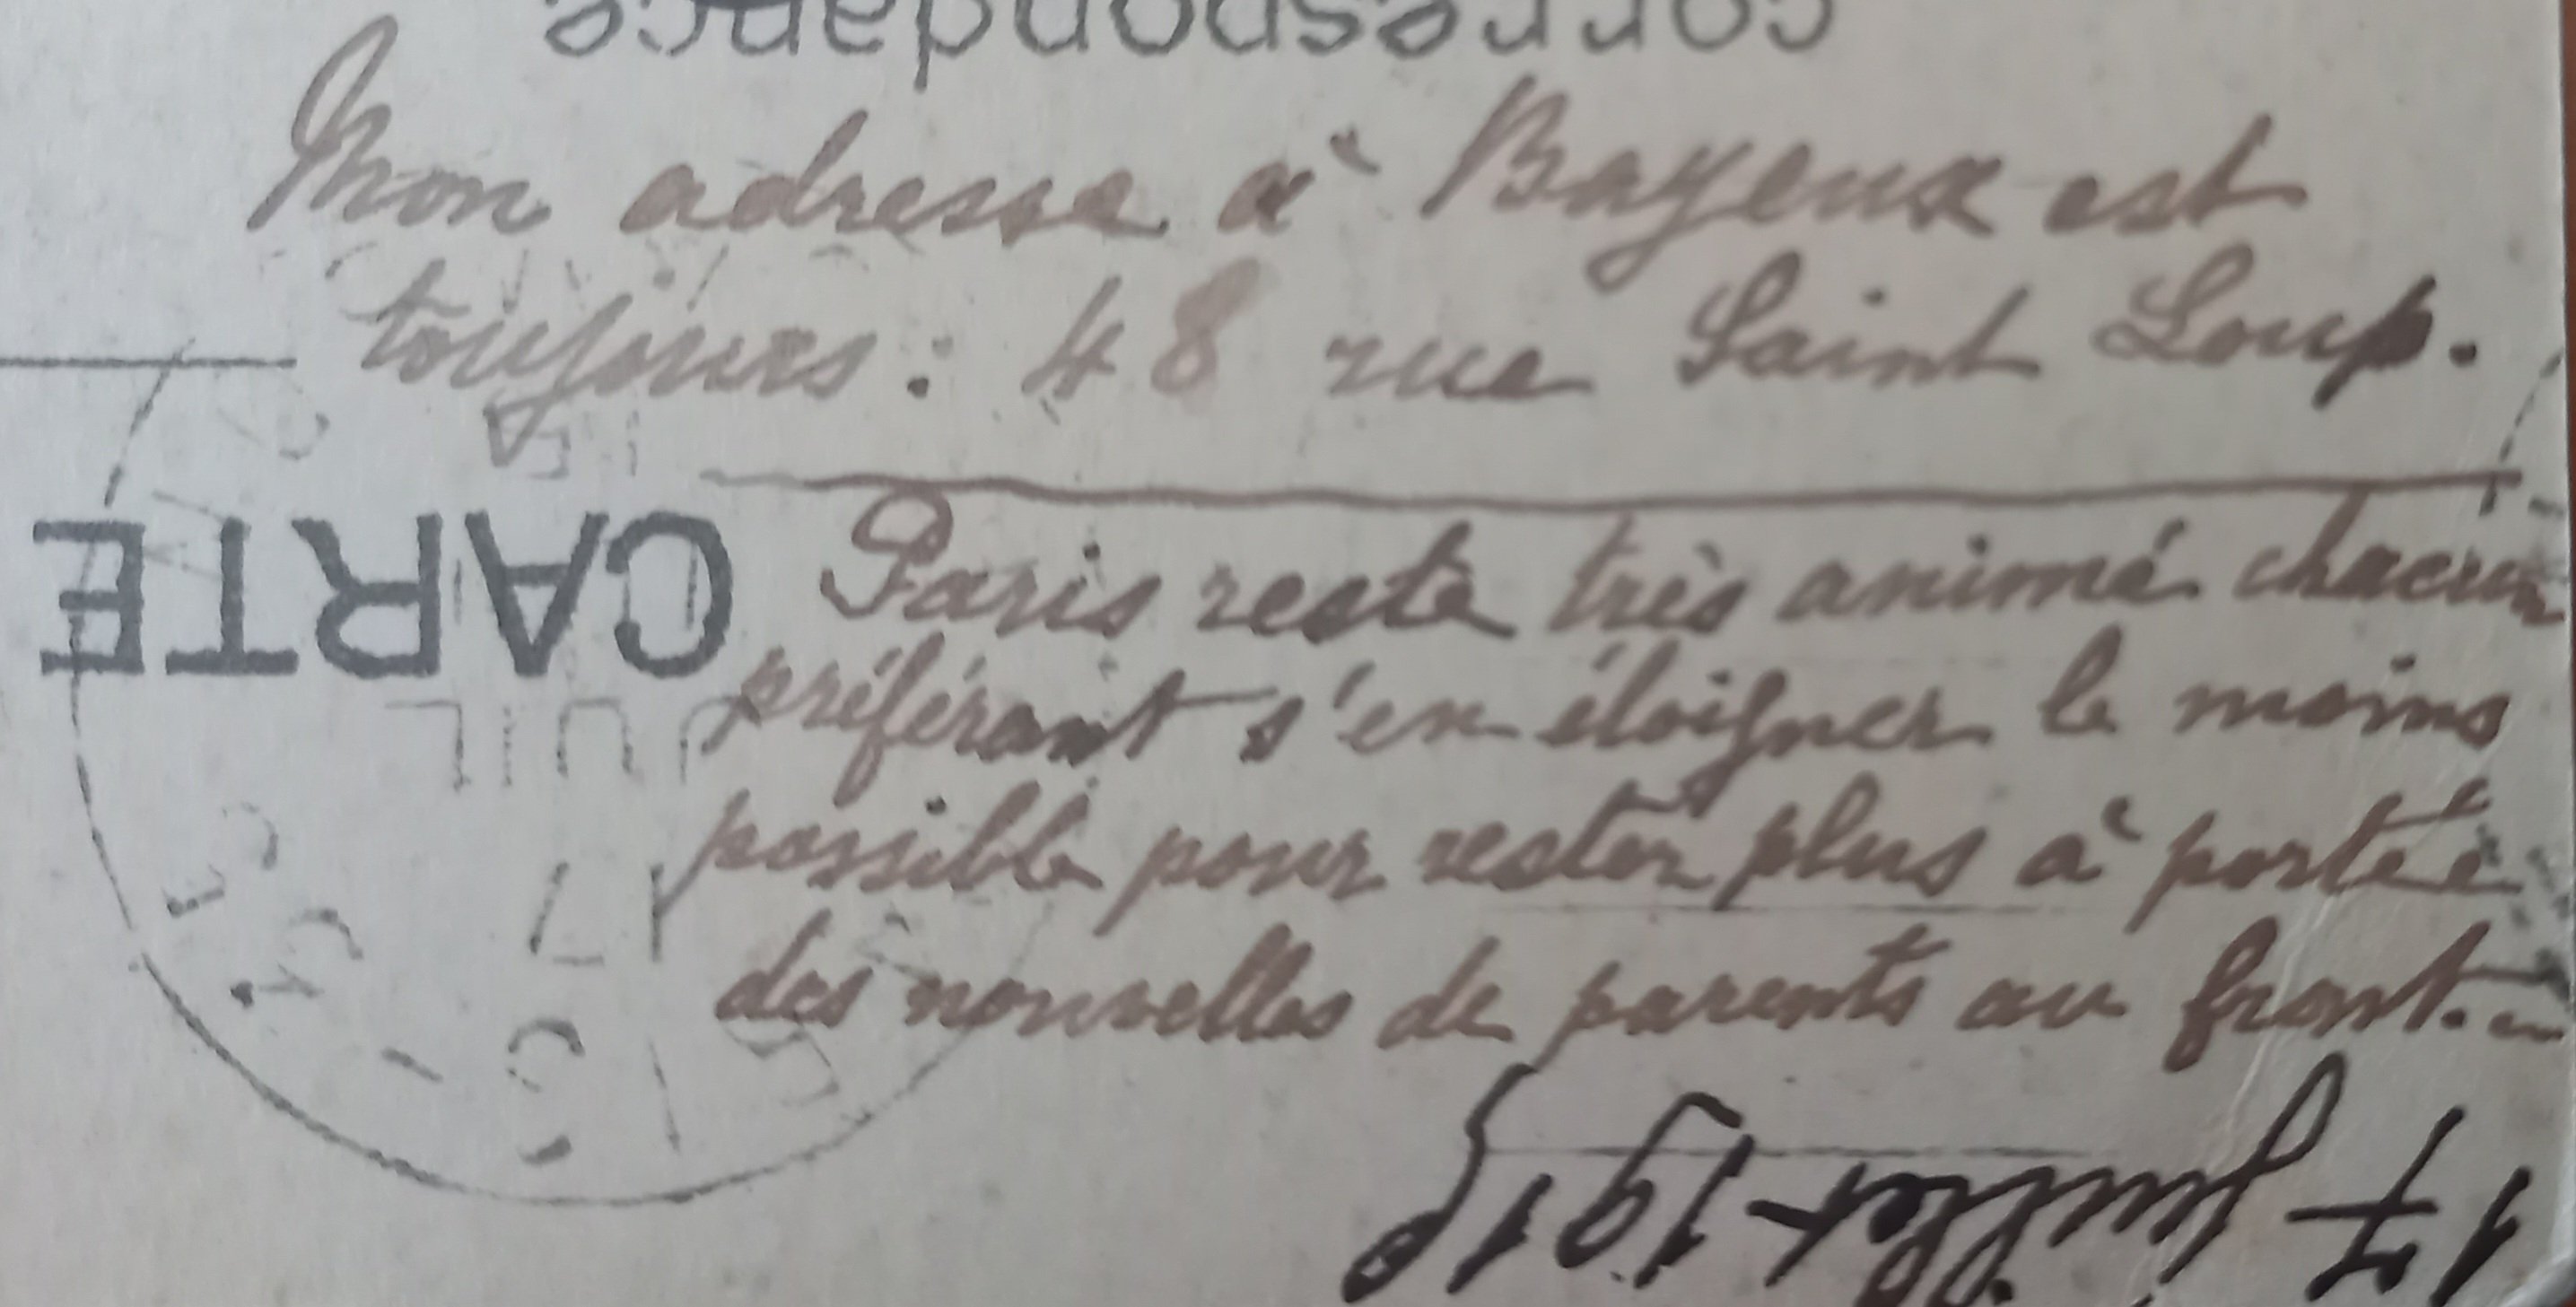 correspondance
Mon adresse à Bayeux est
toujours : 48 rue Saint Loup.
CARTE
Paris reste très animé chacun
préférant s'en éloigner le moins
possible pour rester plus à portée
des nouvelles de parents au front.
JUIL
17
17 Juillet 1915